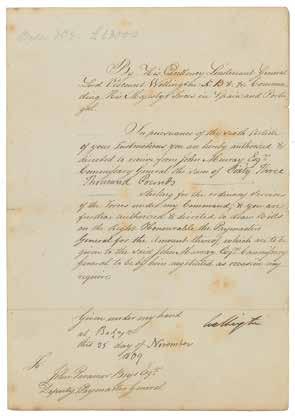 By His Excellency Lieutenant General
Lord Viscount Wellington K.B. &c. Comman-
ding His Majesty's Forces in Spain and Portu-
gal.
In pursuance of the sixth Article
of your Instructions you are hereby authorized &
directed to receive from John Murray Esqr.
Commissary General the sum of Sixty Three
Thousand Pounds
Sterling for the ordinary Services
of the Forces under my Command, & you are
further authorized & directed to draw Bills
on the Right Honourable the Paymaster
General for the Amount thereof which are to be
given to the said John Murray Esqr. Commissary
General to be by him negotiated as occasion may
require.
Given under my hand
at Badajoz
this 25 day of November
1809
Wellington
To
John Esqr.
Deputy Paymaster General